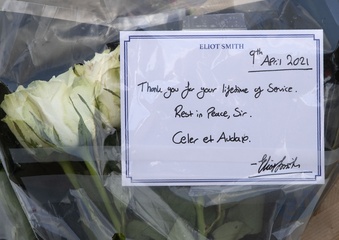 ELIOT SMITH
9th April 2021
Thank you for your lifetime of Service.
Rest in Peace, Sir.
Celer et Audax.
- Eliot Smith